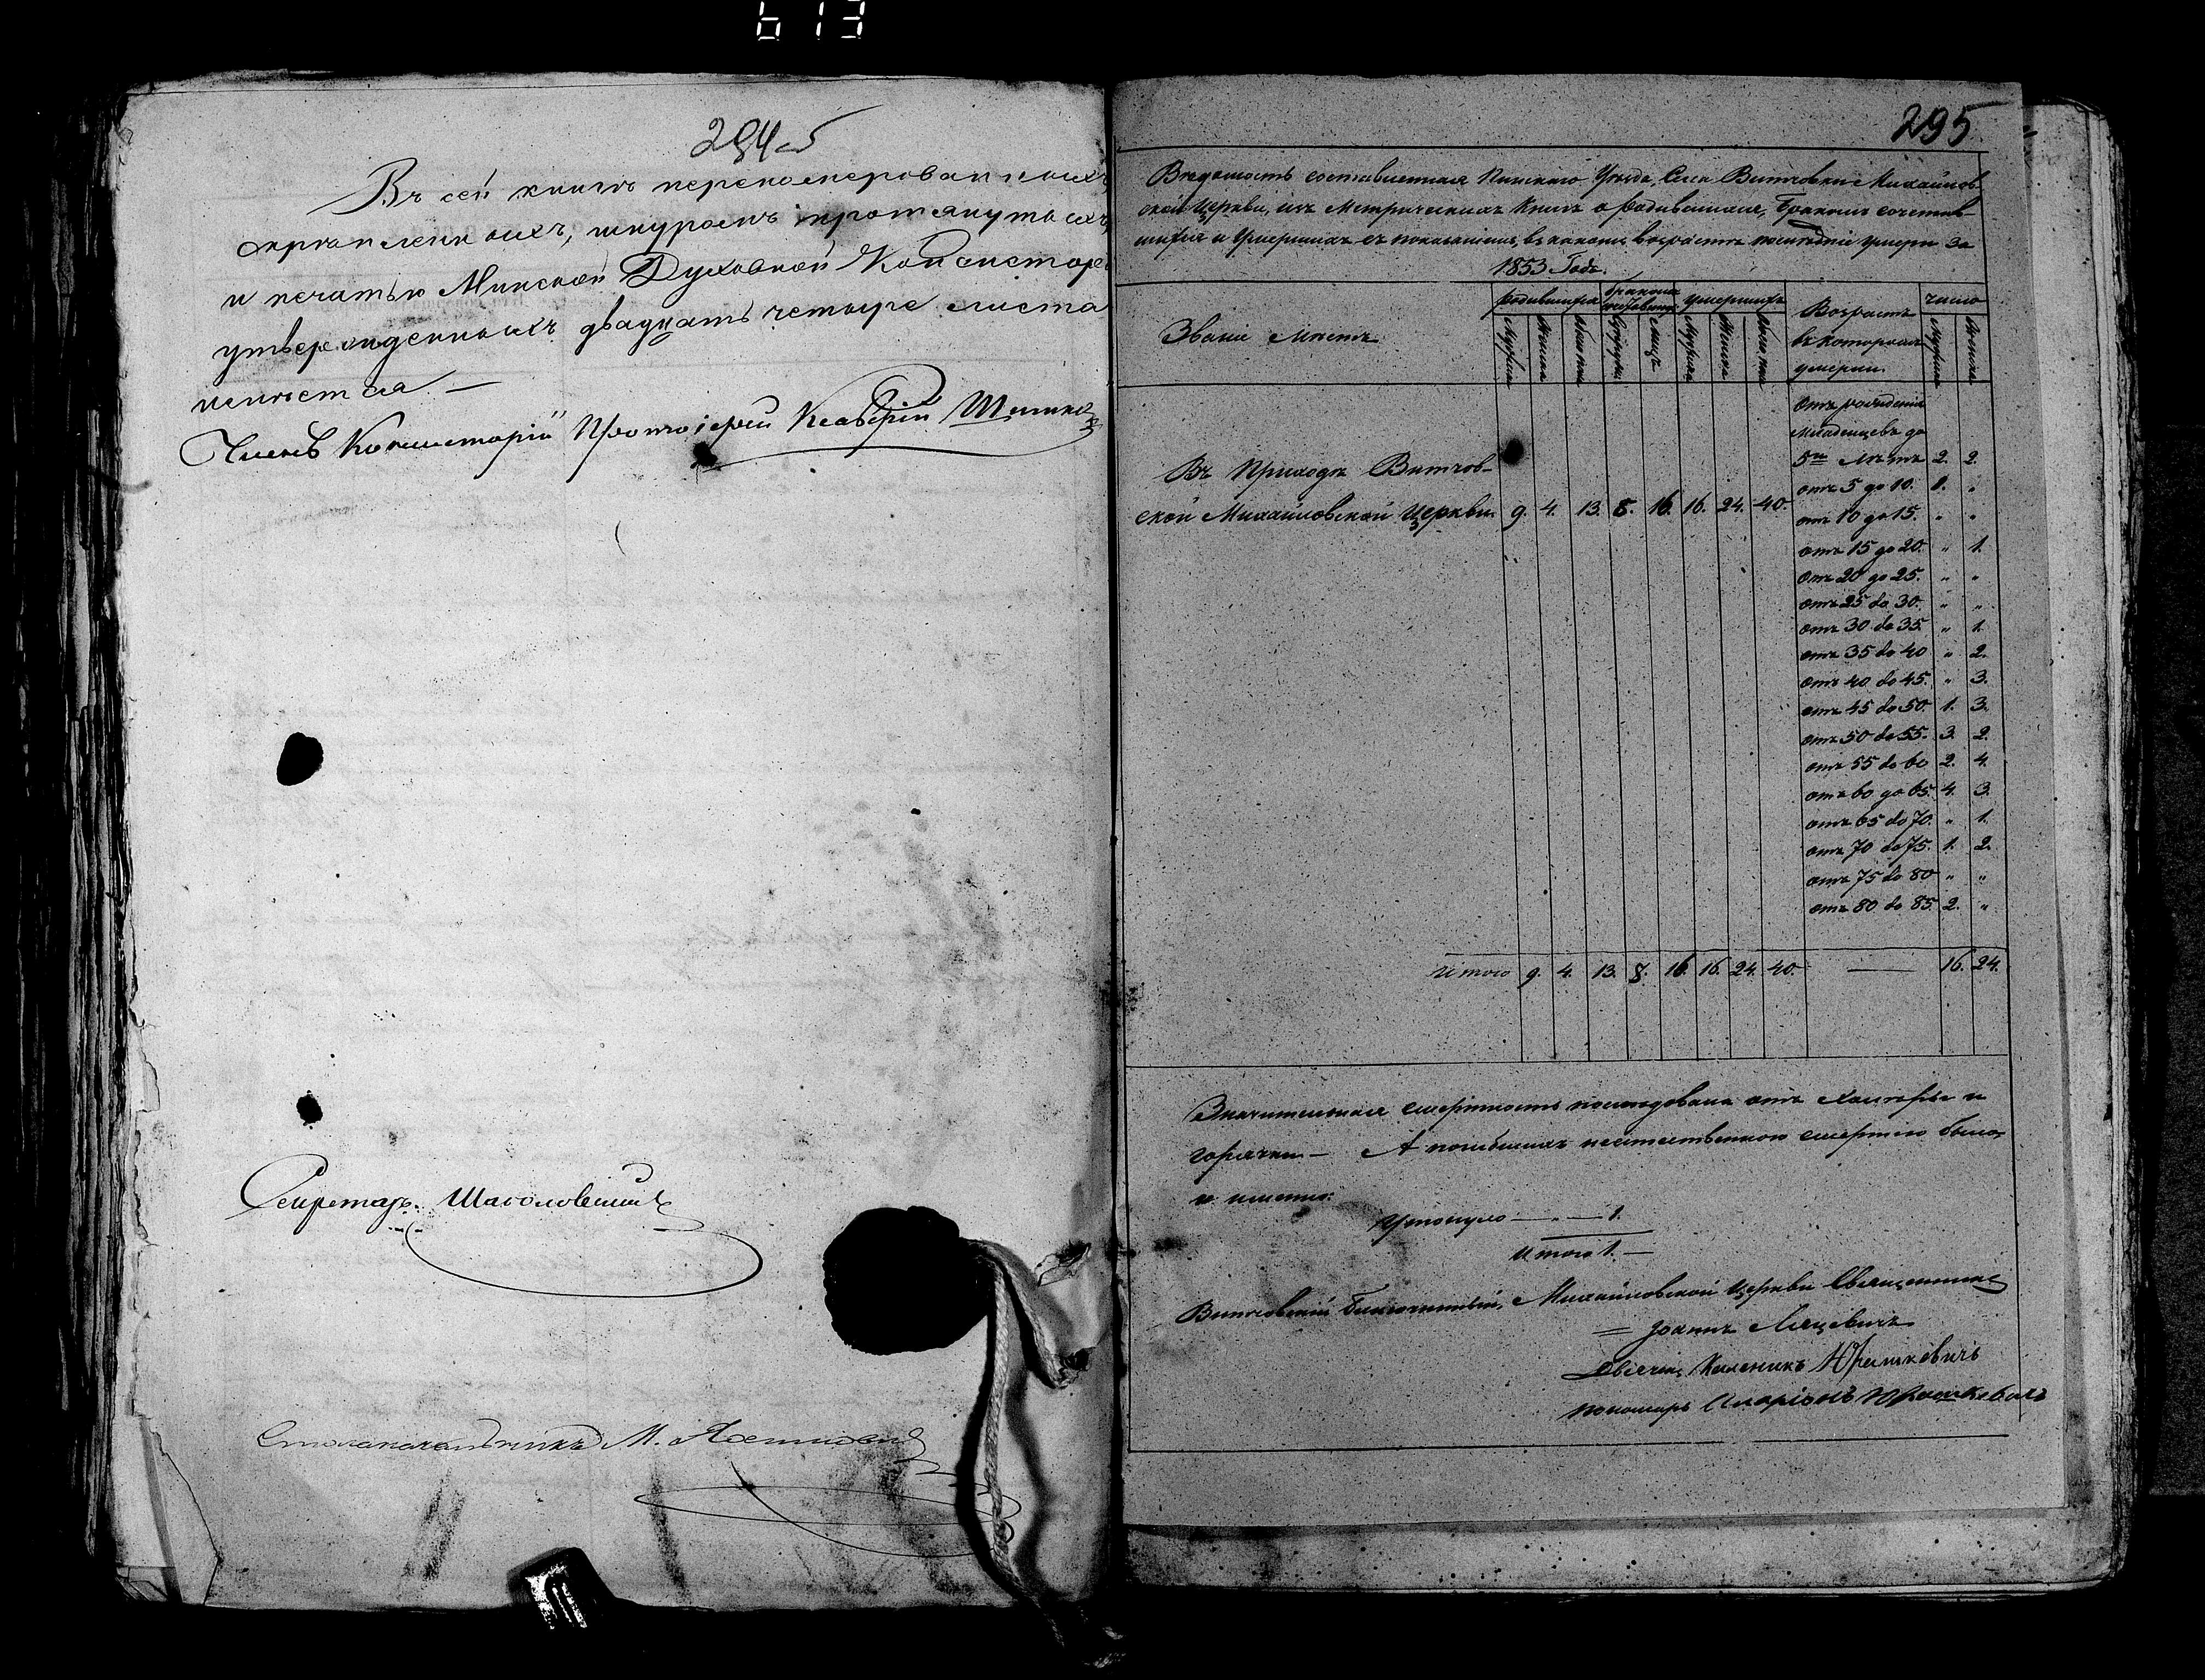 613
294-5
Въ сей книгѣ перенумерованныхъ
скрѣпленныхъ, шнуромъ протянутыхъ
и печатью Минской Духовной Консисторіи
утвержденныхъ двадцать четыре листа
имѣется. —
Членъ Консисторіи Протоіерей
Секретарь
Столоначальникъ М.
295
Вѣдомость составленная Пинскаго Уѣзда, Села Витчовки Михайлов-
ской Церкви, изъ Метрическихъ Книгъ о родившихся, Бракомъ сочетав-
шихся и Умершихъ съ показаніемъ, въ какомъ возрастѣ послѣдніе умерли за
1853 Годъ.
Званіе Мѣстъ
родившихся
Мужеска
Женска
Обоего пола
бракомъ
Супруговъ
Лицъ
Умершихъ
Мужеска
Женска
Обоего пола
Возрастъ
въ которомъ
умерли.
число
Мужеска
Женска
Въ Приходѣ Витчов-
ской Михайловской Церкви. 9. 4. 13. 8. 16. 16. 24. 40.
Отъ рожденія
Младенцевъ до
5и Лѣтъ 2. 2.
отъ 5 до 10. 1. "
отъ 10 до 15. " "
отъ 15 до 20. " 1.
отъ 20 до 25. " "
отъ 25 до 30. " "
отъ 30 до 35. " 1.
отъ 35 до 40 " 2.
отъ 40 до 45. " 3.
отъ 45 до 50. 1. 3.
отъ 50 до 55. 3. 2.
отъ 55 до 60 2. 4.
отъ 60 до 65. 4. 3.
отъ 65 до 70. " 1.
отъ 70 до 75. 1. 2.
отъ 75 до 80 " "
отъ 80 до 85. 2. "
Итого 9. 4. 13. 8. 16. 16. 24. 40. — 16. 24.
Значительная смертность послѣдовала отъ Холеры и
горячки — А погибшихъ неестественною смертію было
и именно:
Утонуло — " — 1.
Итого 1. —
Витчовскій Михайловской Церкви Священникъ
= Іоаннъ Ляцевичъ
Каленикъ Юрашкевичъ
пономарь Иларіонъ Юрашкевичъ